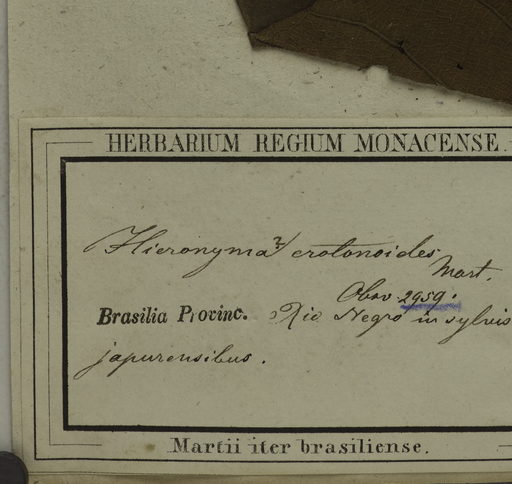 HERBARIUM REGIUM MONACENSE.
Hieronyma? crotonoides
Mart.
Obs. 2959.
Brasilia Provinc. Rio Negro in sylvis
japurensibus.
Martii iter brasiliense.